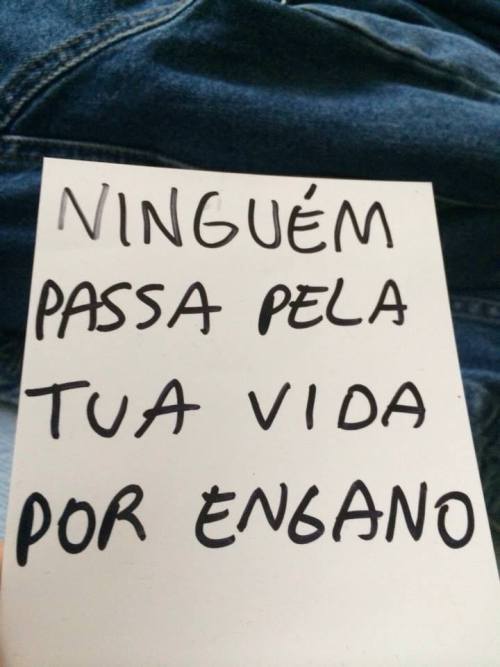 NINGUÉM
PASSA PELA
TUA VIDA
POR ENGANO